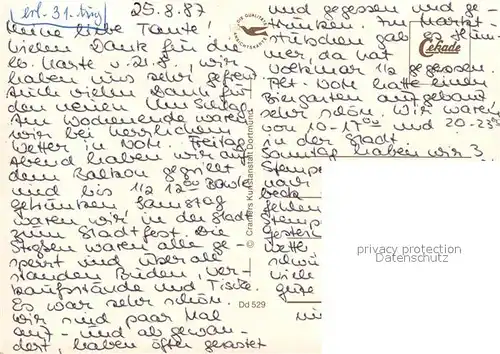 erl. 31. Aug.
25.8.87
Meine liebe Tante!
Vielen Dank für die
lb. Karte v. 21.8., wir
haben uns sehr gefreut
Auch vielen Dank für
den neuen Umschlag.
Am Wochenende waren
wir bei herrlichem
Wetter in Dom. Freitag
Abend haben wir auf
dem Balkon gegrillt
und bis 1/2 12 00 Bowle
getrunken. Samstag
waren wir in der Stadt
zum Stadtfest. Die
Straßen waren alle ge-
sperrt und überall
standen Buden, Ver-
kaufsstände und Tische.
Es war sehr schön.
Wir sind paar Mal
auf- und ab gewan-
dert, haben öfter gerastet
und gegessen und ge-
trunken. Im Markt-
stübchen gab es Hüh-
ner, da hat
Volkmar 1/2 gegessen.
hatte einen
Biergarten aufgebaut
sehr schön. Wir waren
von 10-17 00 und 20-23 00
in der Stadt.
Sonntag haben wir 3
Stempe
nach
beka
fehlen
Stemp
gestern
Wette
schwü
Viele
gute
DER QUALITÄT
ANSICHTSKARTEN
Cekade
© Cramers Kunstanstalt Dortmund
Dd 529
privacy protection
Datenschutz